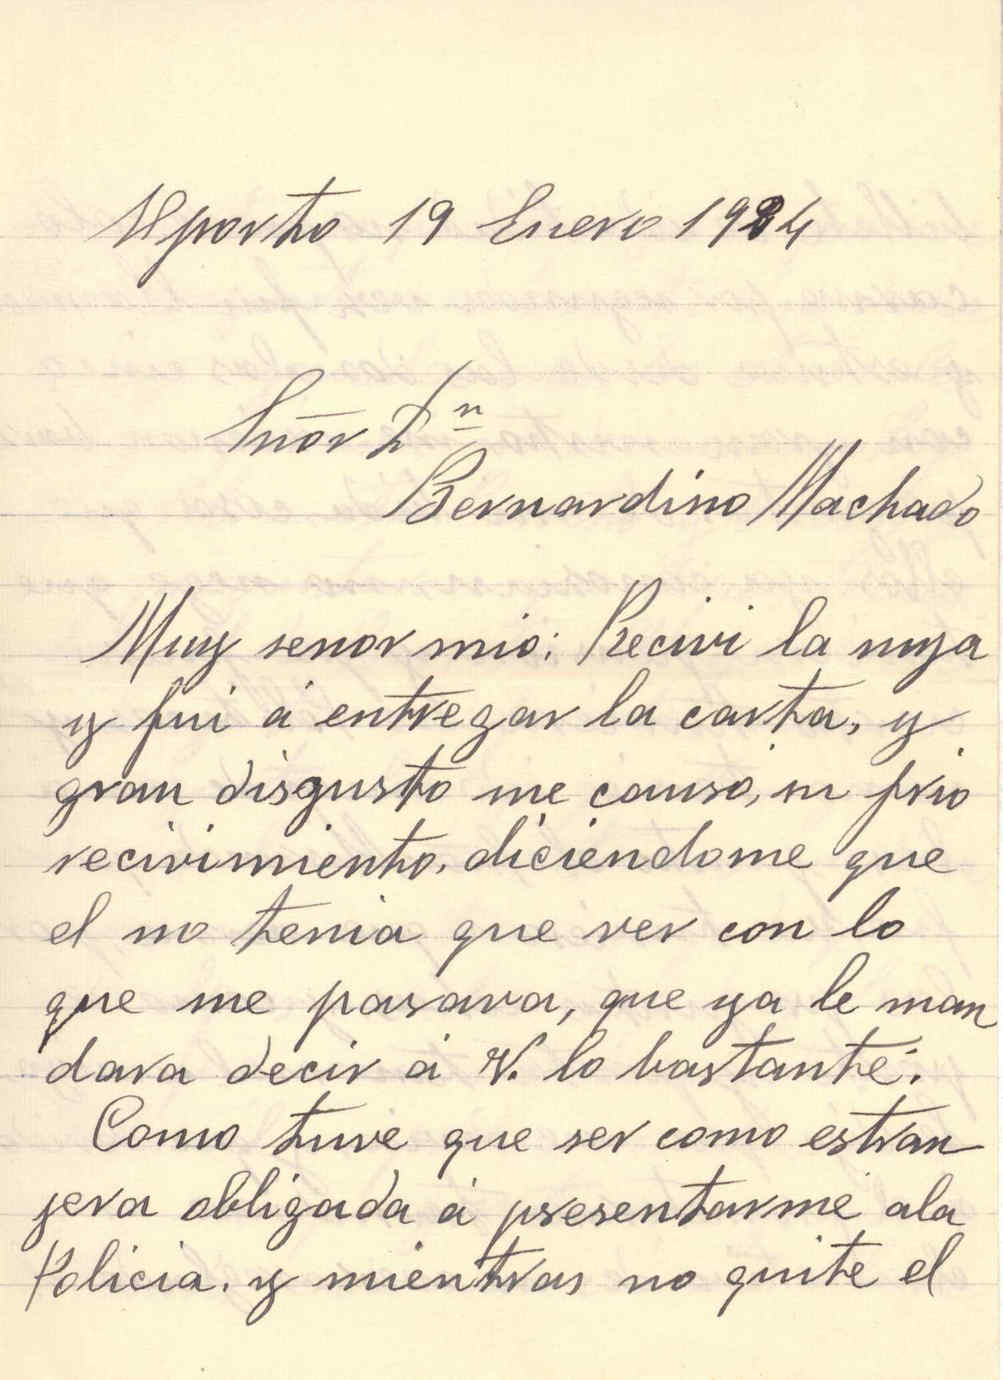 Oporto 19 Enero 1924
Señor Dn
Bernardino Machado
Muy senor mio: Recivi la suya
y fui á entregar la carta, y
gran disgusto me causo, su frio
recivimiento, diciendome que
el no tenia que ver con lo
que me pasara, que ya le man
dara decir á V. lo bastante.
Como tuve que ser como estran
jera obligada á presentarme ala
Policia. y mientras no quite el